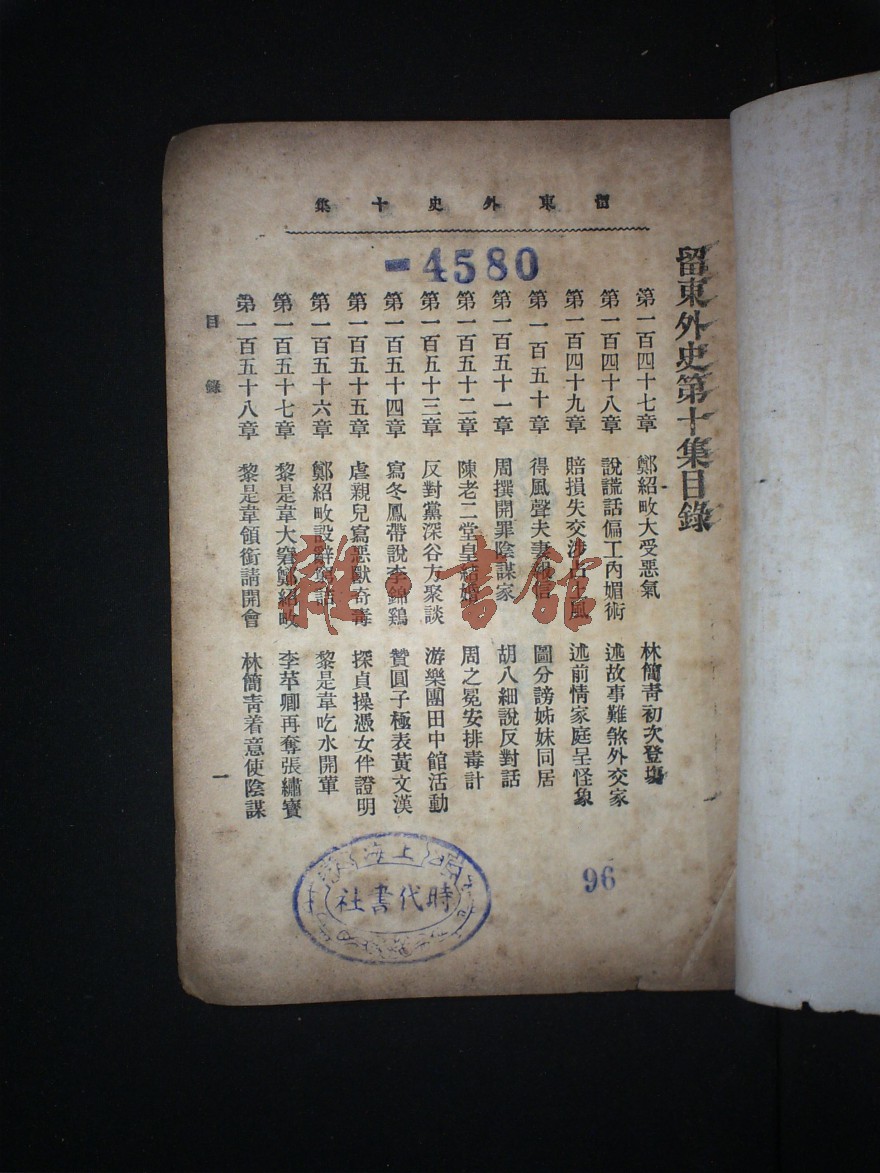 留東外史十集
-4580
留東外史第十集目錄
第一百四十七章 鄭紹畋大受惡氣 林簡青初次登塲
第一百四十八章 說謊話偏工內媚術 述故事難煞外交家
第一百四十九章 賠損失交涉占上風 述前情家庭呈怪象
第一百五十章 得風聲夫妻報信 圖分謗姊妹同居
第一百五十一章 周撰開罪陰謀家 胡八細說反對話
第一百五十二章 陳老二堂皇結婚 周之冕安排毒計
第一百五十三章 反對黨深谷方聚談 游樂團田中館活動
第一百五十四章 寫冬鳳帶說李錦鷄 贊圓子極表黃文漢
第一百五十五章 虐親兒寫惡獸奇毒 探貞操憑女伴證明
第一百五十六章 鄭紹畋設辭窮詰 黎是韋吃水開葷
第一百五十七章 黎是韋大窘鄭紹畋 李苹卿再奪張繡寶
第一百五十八章 黎是韋領銜請開會 林簡青着意使陰謀
目錄
一
雜·書館
上海
時代書社
96